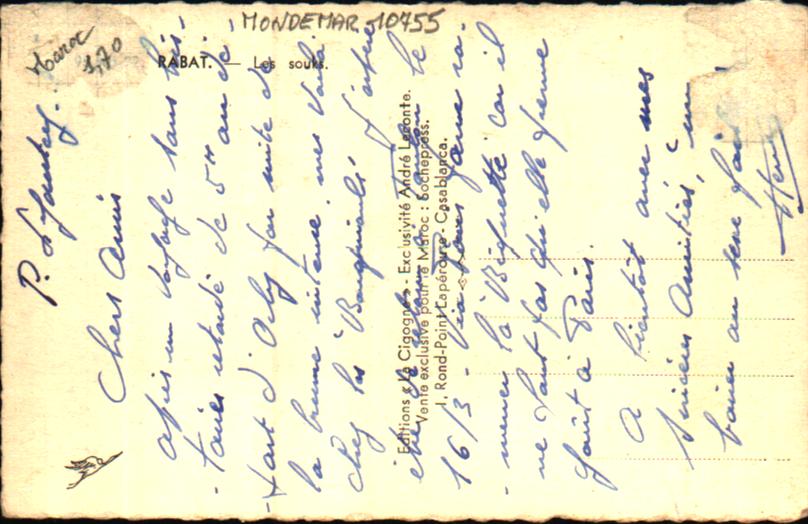 MONDEMAR 10755
Maroc
1,70
RABAT. — Les souks.
Editions « La Cigogne » - Exclusivité André Leconte.
Vente exclusive pour le Maroc : Sochepress.
1, Rond-Point Lapérouse - Casablanca.
P.
Chers Amis
après un voyage sans his-
-toires retardé de 5 H au dé-
-part d'Orly par suite de
la brume intense, me voilà
chez les J'espère
être de retour le
16/3 - Via ra-
-mener la car il
ne faut pas qu'elle prenne
goût à Paris.
A bientôt avec mes
sincères Amitiés, un
au
Henri